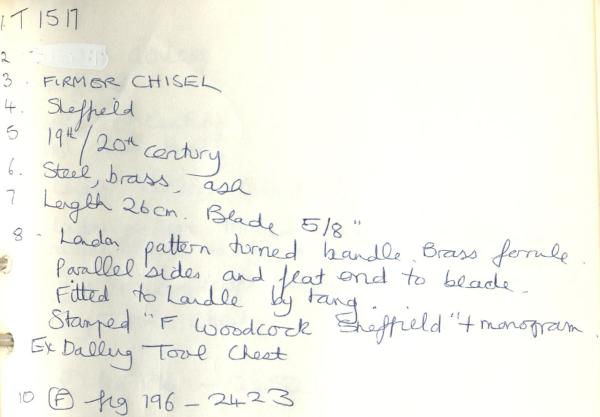 1 T 1517
2
3. FIRMER CHISEL
4. Sheffield
5 19th/20th century
6. Steel, brass, ash
7 Length 26cm. Blade 5/8"
8 - London pattern turned handle. Brass ferrule.
Parallel sides and flat end to blade.
Fitted to handle by tang.
Stamped "F Woodcock Sheffield" + monogram.
Ex Dalling Tool Chest
10 (F) fig 196 - 2423